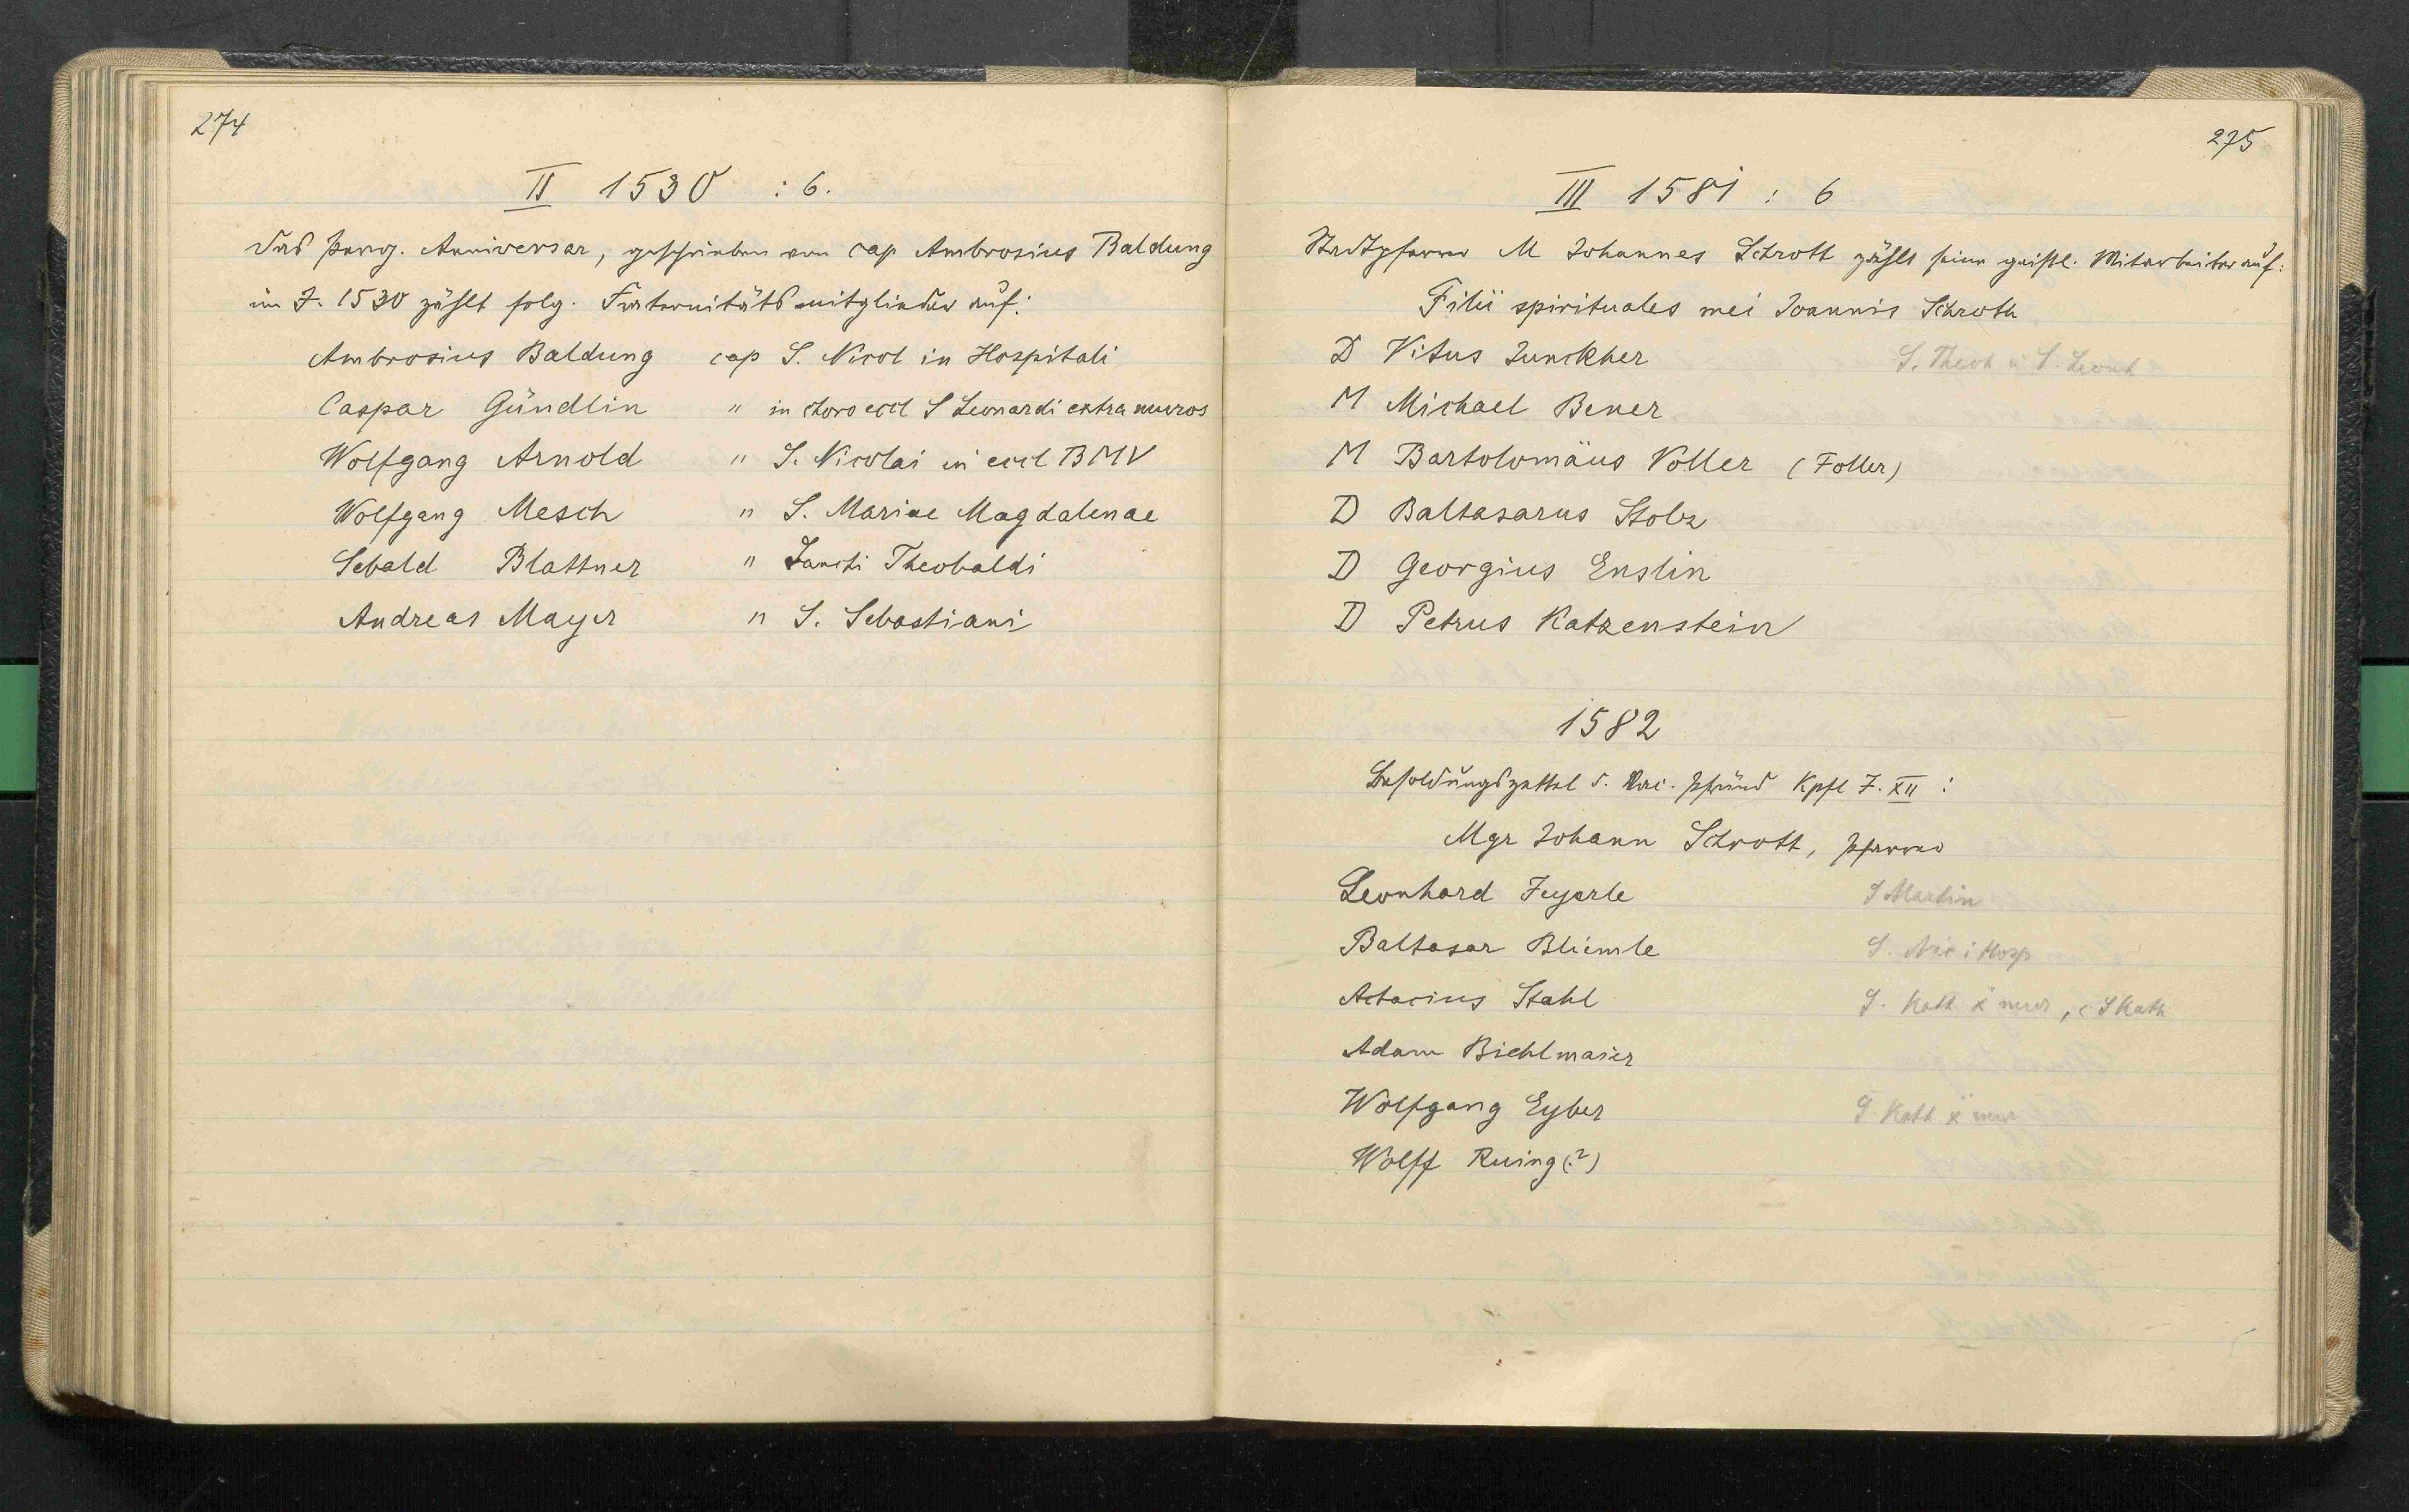 274
II 1530 : 6.
Das perg. Anniversar, geschrieben von cap Ambrosius Baldung
im J. 1530 zählt folg. Fraternitätsmitglieder auf:
Ambrosius Baldung cap S. Nicol in Hospitali
Caspar Gündlin " in choro eccl S Leonardi extra muros
Wolfgang Arnold " S. Nicolai in eccl BMV
Wolfgang Mesch " S. Mariae Magdalenae
Sebald Blattner " Sancti Theobaldi
Andreas Mayer " S. Sebastiani
275
III 1581 : 6
Stadtpfarrer M Johannes Schrott zählt seine geistl. Mitarbeiter auf:
Filii spirituales mei Joannis Schroth
D Vitus Junckher S. Theob u S. Leonh
M Michael Bener
M Bartolomäus Voller (Foller)
D Baltasarus Stolz
D Georgius Enslin
D Petrus Katzenstein
1582
Besoldungszettel d. Pfründ Kpfl J. XII :
Mgr Johann Schrott, Pfarrer
Leonhard Feyerle S Martin
Baltasar Bliemle S. Nic i Hosp
Achacius Stahl S. Kath x mur, c S Kath
Adam Biehlmaier
Wolfgang Eyber S Kath x mur
Wolff Ruing (?)